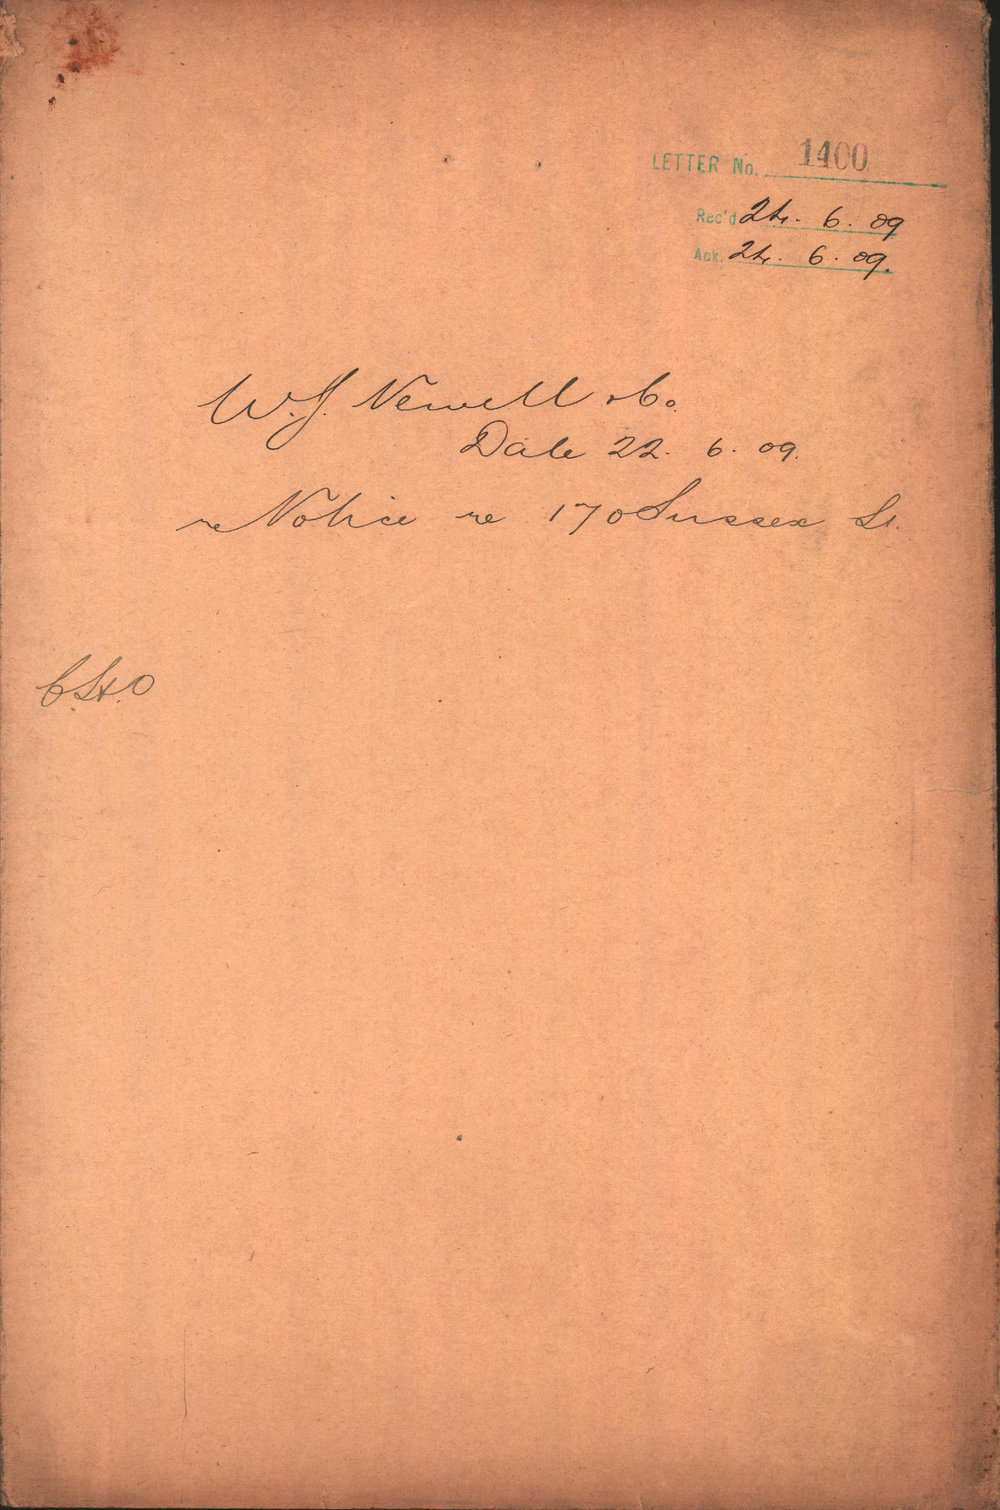 LETTER No. 1400
Rec'd 24. 6. 09
Ack. 24. 6. 09.
W. J. Newell & Co.
Date 22. 6. 09.
re Notice re 170 Sussex St.
C.H.O